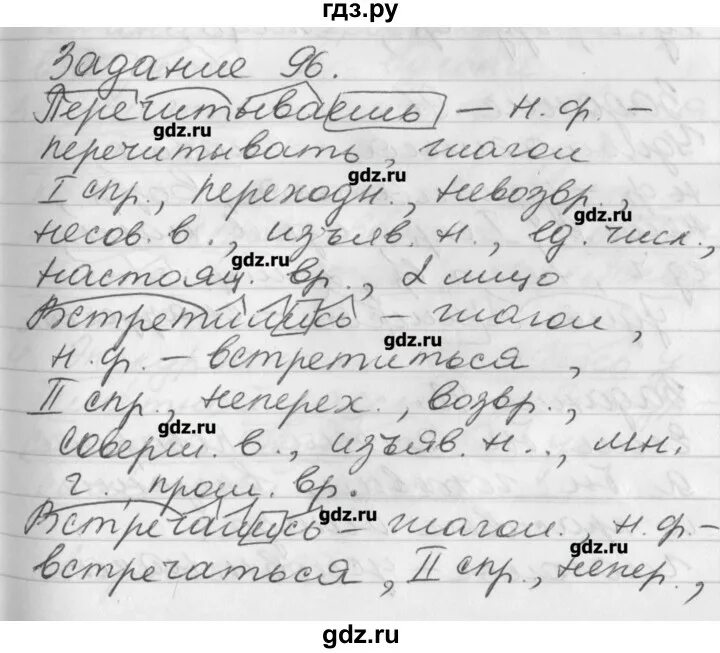 гдз.ру
Задание 96.
Перечитываешь – н. ф. –
gdz.ru
перечитывать, глагол
gdz.ru
I спр., переходн., невозвр.,
gdz.ru
несов. в., изъяв. н., ед. числ.,
gdz.ru
настоящ. вр., 2 лицо
Встретились – глагол,
gdz.ru
н. ф. – встретиться,
II спр., неперех., возвр.,
gdz.ru
соверш. в., изъяв. н., мн.
ч., прош. вр.
gdz.ru
Встречались – глагол., н. ф. –
gdz.ru
встречаться, II спр., непер.,
gdz.ru